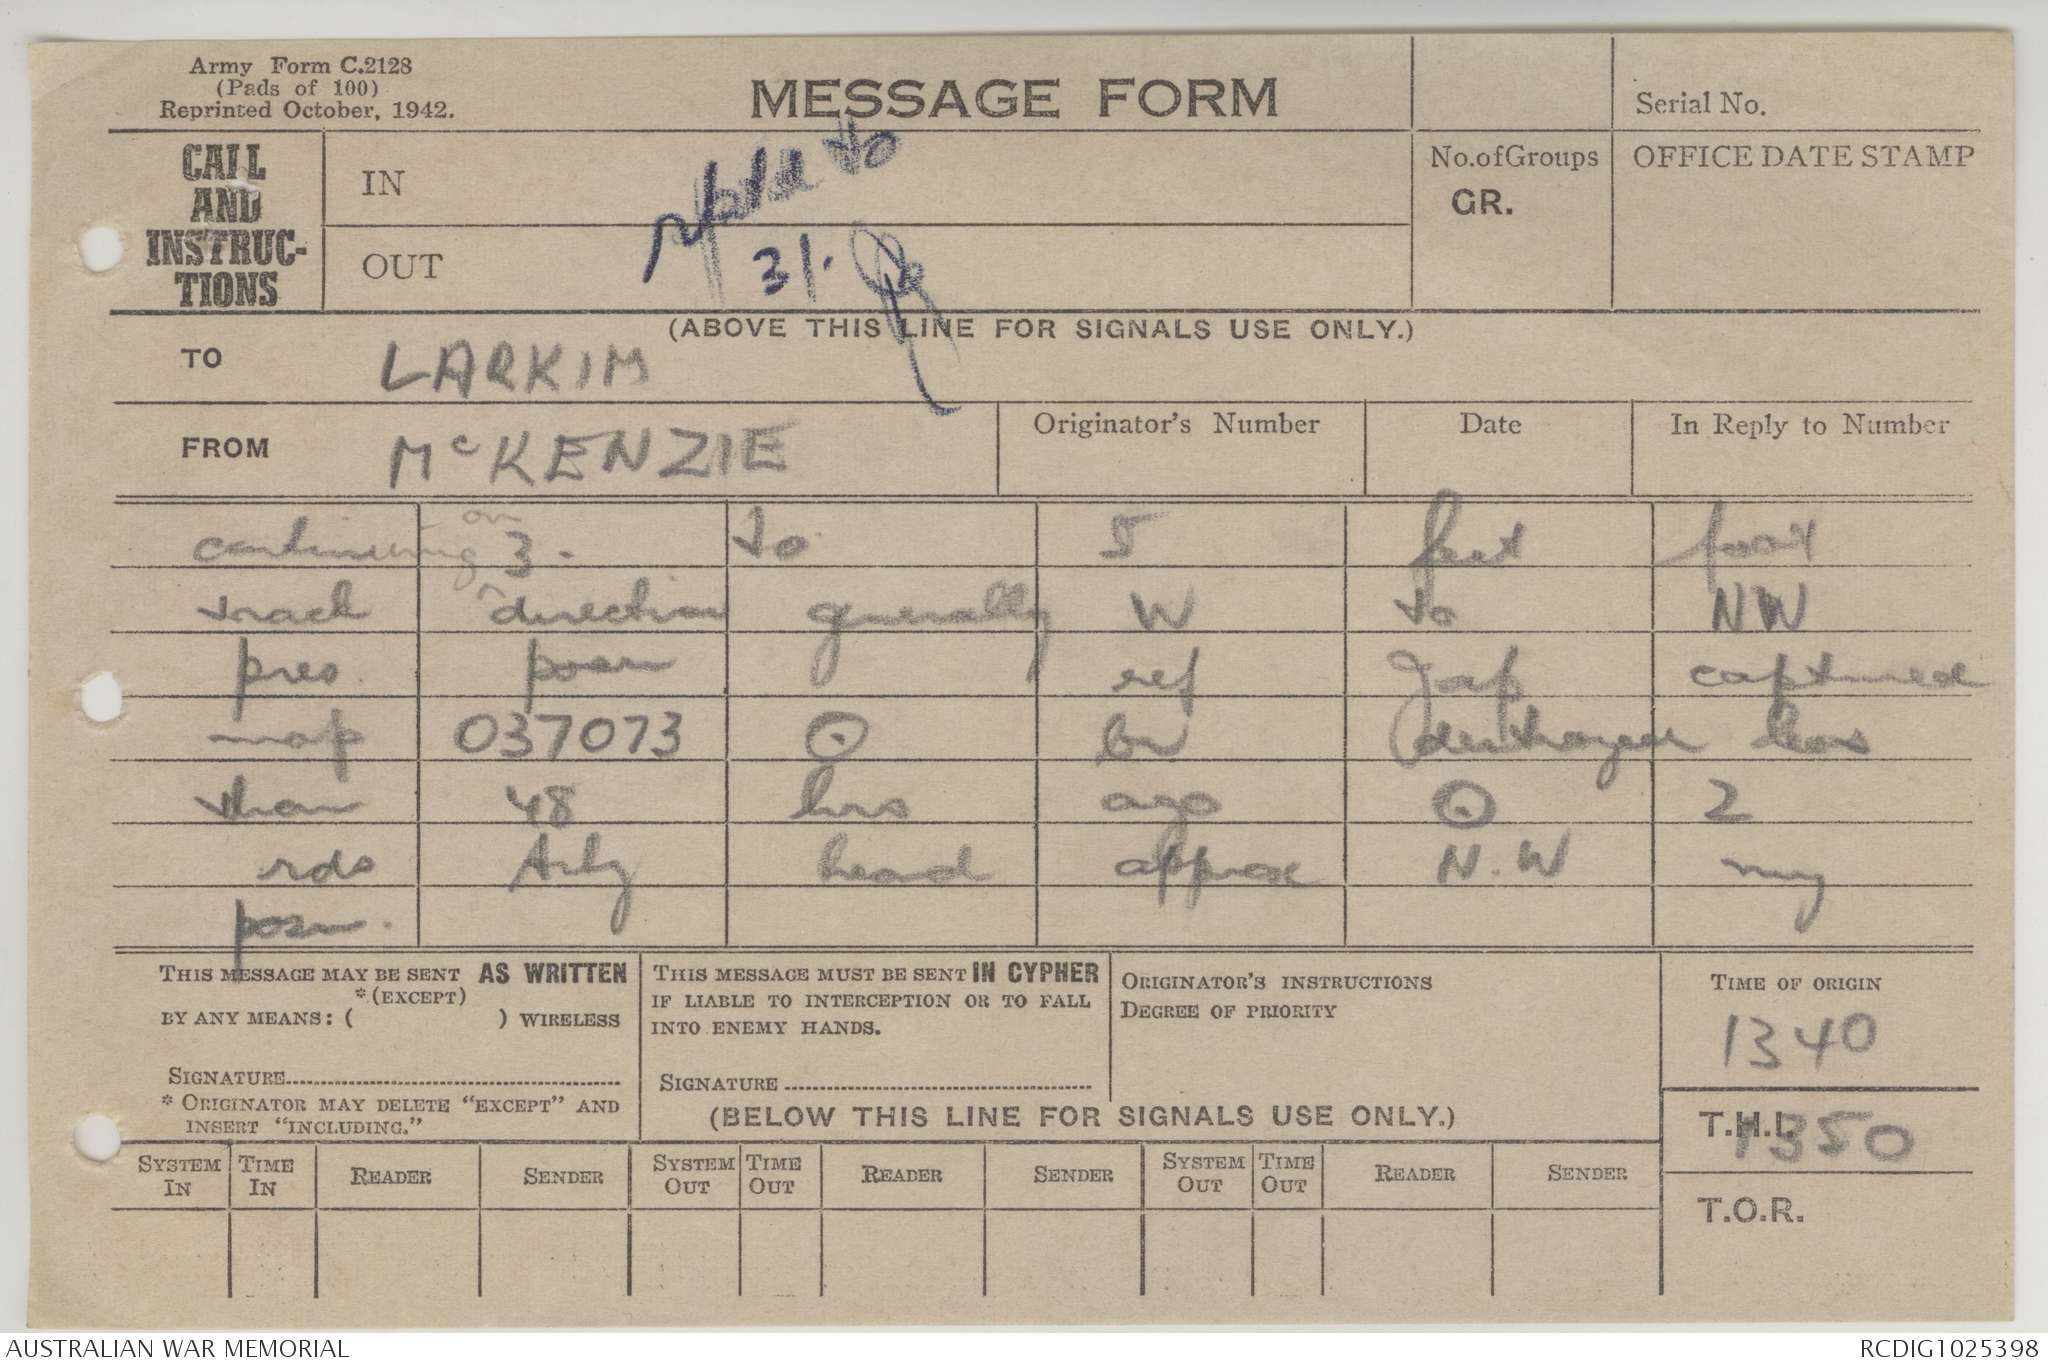 Army Form C.2128
(Pads of 100)
Reprinted October, 1942.
MESSAGE FORM
Serial No.
CALL AND INSTRUC-TIONS
IN
No. of Groups
GR.
OFFICE DATE STAMP
OUT
31.
(ABOVE THIS LINE FOR SIGNALS USE ONLY.)
TO LARKIM
FROM McKENZIE
Originator's Number
Date
In Reply to Number
continuing on 3. to 5 feet foot
track direction generally W to NW
pres. posn ref Jap captured
map 037073 ⊙ br destroyed less
than 48 hrs ago ⊙ 2
rds Arty heard approx N.W my
posn.
THIS MESSAGE MAY BE SENT AS WRITTEN
*(EXCEPT)
BY ANY MEANS: ( ) WIRELESS
SIGNATURE
* ORIGINATOR MAY DELETE "EXCEPT" AND
INSERT "INCLUDING."
THIS MESSAGE MUST BE SENT IN CYPHER
IF LIABLE TO INTERCEPTION OR TO FALL
INTO ENEMY HANDS.
SIGNATURE
ORIGINATOR'S INSTRUCTIONS
DEGREE OF PRIORITY
TIME OF ORIGIN
1340
(BELOW THIS LINE FOR SIGNALS USE ONLY.)
T.H.I. 1350
SYSTEM IN TIME IN READER SENDER SYSTEM OUT TIME OUT READER SENDER SYSTEM OUT TIME OUT READER SENDER
T.O.R.
AUSTRALIAN WAR MEMORIAL
RCDIG1025398